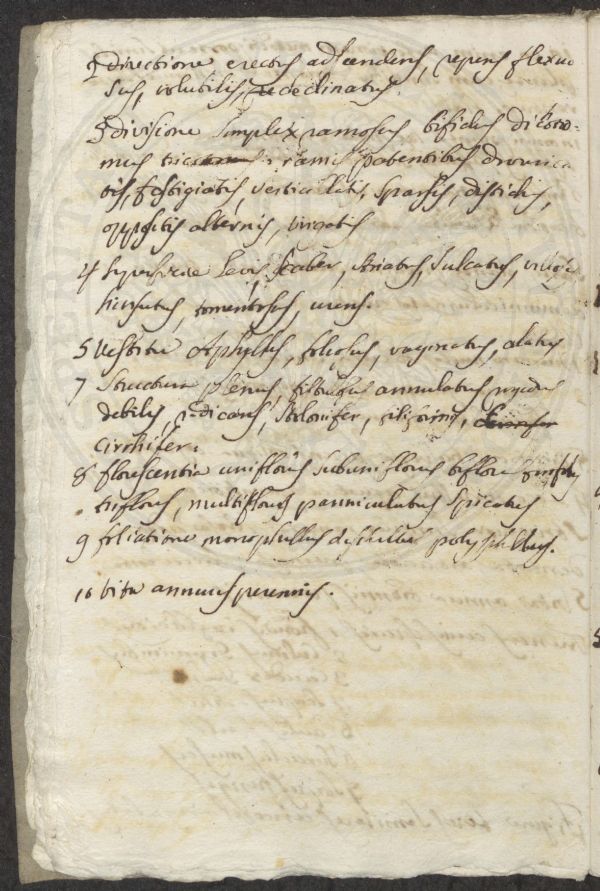 2 directione erectus adscendens, repens flexuo
sus, volubilis, declinatus.
3 divisione simplex ramosus bifidus dichoto-
mus ramis patentibus
fastigiatis, verticillatis, sparsis, distichis,
oppositis alternis, virgatis
4 superficie laevis, scaber, striatus, sulcatus,
hirsutus, tomentosus, urens.
5 vestitu Aphyllus, foliosus, vaginatus, alatus
7 structura plenus, fistulosus annulatus
debilis, radicans, stolonifer, filiformis,
cirrhifer.
8 florescentia uniflorus subuniflorus biflorus
triflorus, multiflorus panniculatus spicatus
9 foliatione monophyllus diphyllus polyphyllus.
10 vita annuus perennis.